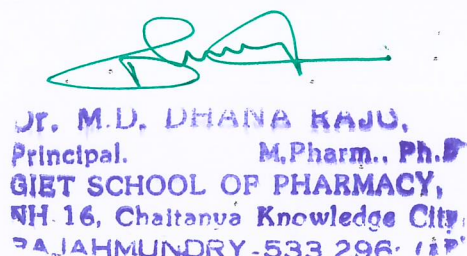 Dr. M.D. DHANA RAJU,
Principal. M.Pharm., Ph.D
GIET SCHOOL OF PHARMACY,
NH-16, Chaitanya Knowledge City,
RAJAHMUNDRY-533 296. (AP)